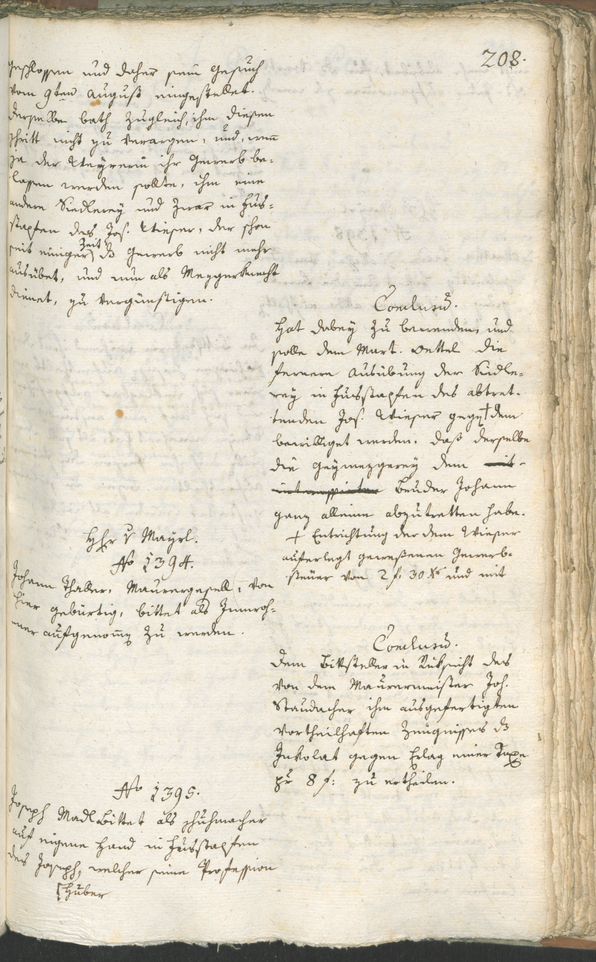 208.
geschlossen und daher sein Gesuch
vom 9ten August eingestellet.
derselbe bath zugleich, ihm diesen
Schritt nicht zu verargen, und, wenn
ja der Wieserin ihr Gewerb be-
lassen werden sollte, ihm eine
andere Siedlerey und zwar in Fus-
stapfen des Jos. Wieser, der schon
seit einiger Zeit das Gewerb nicht mehr
ausübet, und nun als Mezgerknecht
dienet, zu vergünstigen.
Conclusu.
Hat dabey zu bewenden, und
solle dem Mart. Oettel die
fernere Ausübung der Siedle-
rey in Fusstapfen des abtret-
tenden Jos. Wieser gegen † dem
bewilliget werden, daß derselbe
die Geymezgerey dem
Bruder Johann
ganz alleine abzutretten habe.
† Entrichtung der dem Wieser
auferlegt gewesenen Gewerb-
steuer von 2 f. 30 Xr und mit
Hr v Mayrl.
No 1394.
Johann Thaler, Maurergesell, von
hier gebürtig, bittet als Innwoh-
ner aufgenomen zu werden.
Conclusu.
Dem Bittsteller in Rüksicht des
von dem Maurermeister Joh.
Staudacher ihm ausgefertigten
vortheilhaften Zeugnisses das
Inkolat gegen Erlag einer Taxe
pr 8 f: zu ertheilen.
No 1395.
Joseph Madl bittet als Schuhmacher
auf eigene Hand in Fusstapfen
des Joseph, welcher seine Profession
Huber